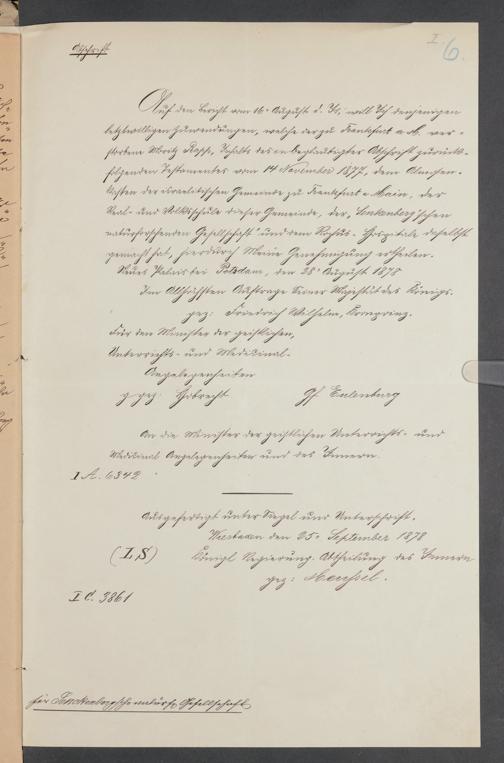 I 6.
Abschrift
Auf den Bericht vom 16. August d. Js. will Ich denjenigen
letztwilligen Zuwendungen, welche der zu Frankfurt a. M. ver-
storbene Moritz Inhalts des in beglaubigter Abschrift zurück-
folgenden Testamentes vom 14 November 1877, dem Almosen-
kasten der israelitischen Gemeinde zu Frankfurt a Main, der
Real- und Volksschule dieser Gemeinde, der Senkenberg'schen
naturforschenden Gesellschaft und dem Rochus-Hospitale daselbst
gemacht hat, hierdurch Meine Genehmigung ertheilen.
Neues Palais bei Potsdam, den 28. August 1878
Im Allerhöchsten Auftrage Seiner Majestät des Königs.
gez: Friedrich Wilhelm, Kronprinz.
Für den Minister der geistlichen,
Unterrichts- und Medizinal-
Angelegenheiten
gez: Gf Eulenburg
An die Minister der geistlichen Unterrichts- und
Medizinal Angelegenheiten und des Innern.
I A. 6342
Ausgefertigt unter Siegel und Unterschrift.
Wiesbaden den 25. September 1878
(L.S) Königl Regierung. Abtheilung des Innern
gez:
I C. 3861
für Senckenbergsche naturf. Gesellschaft